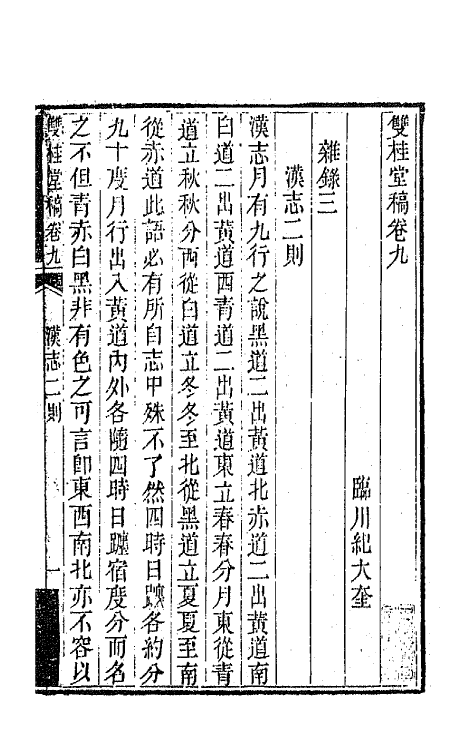 雙桂堂稿卷九
臨川紀大奎
雜錄三
漢志二則
漢志月有九行之說黑道二出黃道北赤道二出黃道南
白道二出黃道西青道二出黃道東立春春分月東從青
道立秋秋分西從白道立冬冬至北從黑道立夏夏至南
從赤道此語必有所自志中殊不了然四時日躔各約分
九十度月行出入黃道內外各隨四時日躔宿度分而名
之不但青赤白黑非有色之可言卽東西南北亦不容以
雙桂堂稿卷九
漢志二則
一